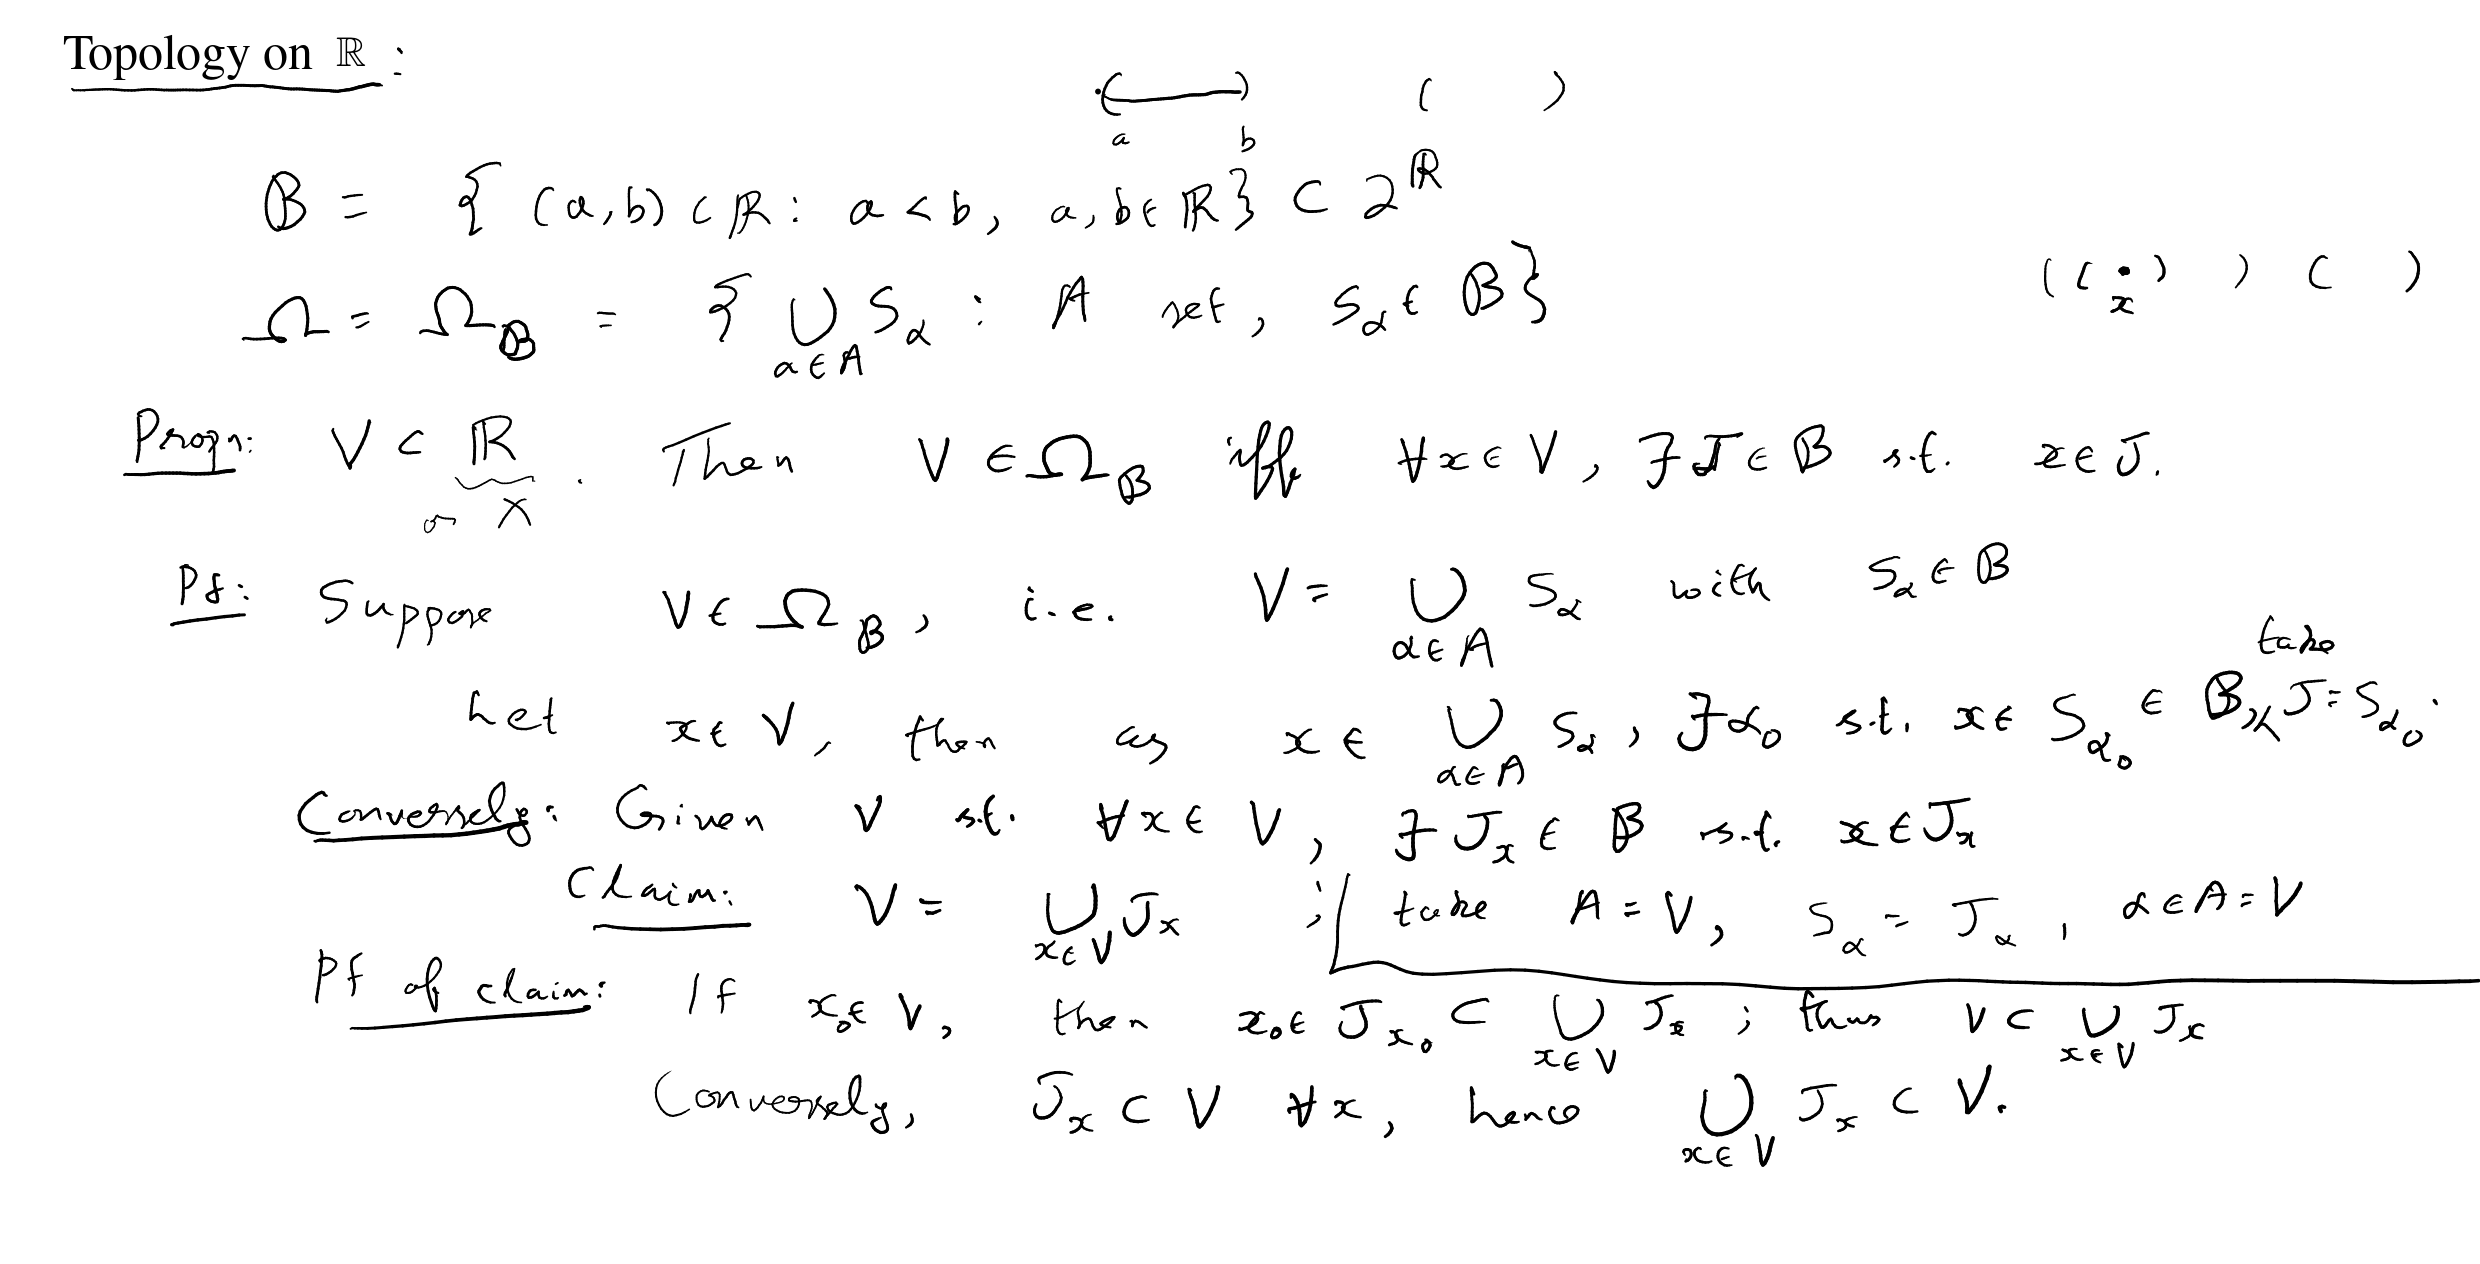 Topology on ℝ :
( ) ( )
a b
𝔹 = { (a,b) ⊂ ℝ : a < b, a, b ∈ ℝ } ⊂ 2^ℝ
Ω = Ω_𝔹 = { ∪_{α∈A} S_α : A set, S_α ∈ 𝔹 } ( ( x ) ) ( )
Propn: V ⊂ ℝ . Then V ∈ Ω_𝔹 iff ∀x ∈ V, ∃ J ∈ 𝔹 s.t. x ∈ J.
or X
Pf: Suppose V ∈ Ω_𝔹, i.e. V = ∪_{α∈A} S_α with S_α ∈ 𝔹
Let x ∈ V, then as x ∈ ∪_{α∈A} S_α, ∃ α₀ s.t. x ∈ S_{α₀} ∈ 𝔹, take J = S_{α₀}.
Conversely: Given V s.t. ∀x ∈ V, ∃ J_x ∈ 𝔹 s.t. x ∈ J_x
Claim: V = ∪_{x∈V} J_x ; take A = V, S_α = J_α, α ∈ A = V
Pf of claim: If x₀ ∈ V, then x₀ ∈ J_{x₀} ⊂ ∪_{x∈V} J_x ; thus V ⊂ ∪_{x∈V} J_x
Conversely, J_x ⊂ V ∀x, hence ∪_{x∈V} J_x ⊂ V.